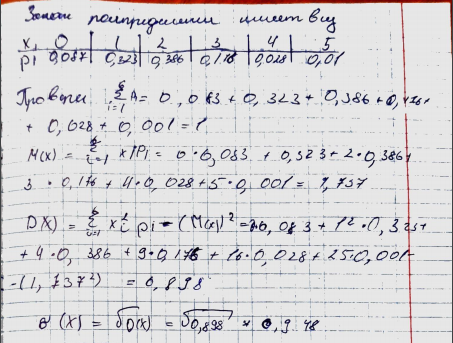 Закон распределения имеет вид
xi 0 1 2 3 4 5
pi 0,087 0,323 0,386 0,176 0,028 0,01
Проверка Σ i=1 6 = 0,083 + 0,323 + 0,386 + 0,176+
+ 0,028 + 0,001 = 1
M(x) = Σ i=1 6 xipi = 0·0,083 + 0,323 + 2·0,386+
3·0,176 + 4·0,028 + 5·0,001 = 1,737
D(X) = Σ i=1 6 xi² pi - (M(x))² = 0,083 + 1²·0,323+
+ 4·0,386 + 9·0,176 + 16·0,028 + 25·0,001-
-(1,737²) = 0,898
σ(X) = √D(x) = √0,898 ≈ 0,948